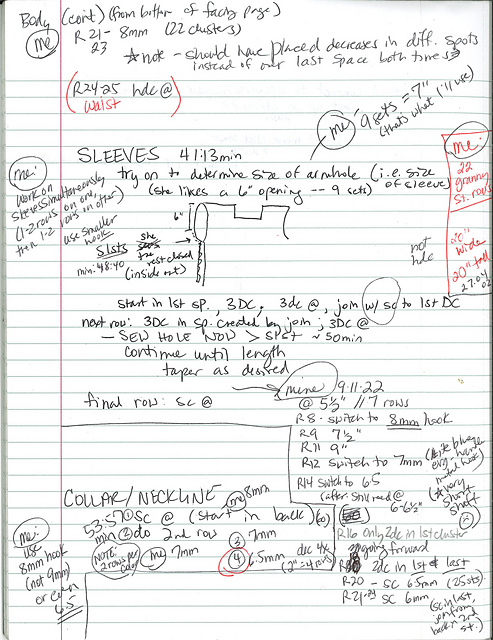 Body (cont) (from bottom of facing page)
me
R 21 - 8mm (22 clusters)
23
☆note - should have placed decreases in diff. spots
instead of our last space both times
(R24-25 hdc @
waist)
me 9 sets = 7"
(that's what I'll use)
SLEEVES 41:13 min
try on to determine size of armhole (i.e. size
of sleeve)
(she likes a 6" opening -- 9 sets)
me:
work on
sleeves simultaneously
(1-2 rows on one,
then 1-2 rows on other)
use smaller
hook
me:
22
granny
st. rows
26" wide
20" tall
not
hdc
6"
she
slsts
the
rest closed
(inside out)
min: 48:40
start in 1st sp., 3DC, 3dc @, join w/ sc to 1st DC
next row: 3DC in sp. created by join; 3DC @
- SEW HOLE NOW > SLST ~ 50min
continue until length
taper as desired
final row: sc @
mine 9-11-22
@ 5½" // 7 rows
R 8 - switch to 8mm hook
R9 7½"
R11 9"
R12 switch to 7mm
R14 switch to 6.5
(very
short
shaft
6-6½"
R16 only 2dc in 1st cluster
ongoing forward
2dc in 1st & last
R20 - sc 6.5mm (25 sts)
sc 6mm
(sc in last,
COLLAR/NECKLINE
me 8mm
53:57 ① sc @ (start in back) (60)
min ② do 2nd row
③ 7mm
④ 6.5mm dec 4x
(2" = 4 rows)
me 7mm
NOTE:
2 rows per
me:
use
8mm hook
(not 9mm)
or even
6.5